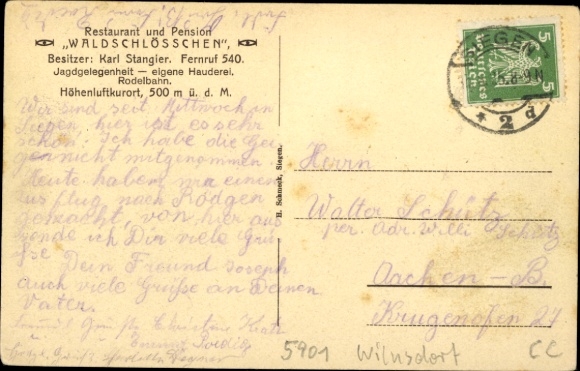 Restaurant und Pension
„WALDSCHLÖSSCHEN",
Besitzer: Karl Stangier. Fernruf 540.
Jagdgelegenheit — eigene Hauderei.
Rodelbahn.
Höhenluftkurort, 500 m ü. d. M.
Wir sind seit Mittwoch in
Siegen, hier ist es sehr
schön. Ich habe die Gei-
gen nicht mitgenommen
Heute haben wir einen
Ausflug nach Rödgen
gemacht, von hier aus
sende ich Dir viele Grü-
ße
Dein Freund Joseph
auch viele Grüße an Deinen
Vater.
H. Schmeck, Siegen.
SIEGEN
8-9 N
* 2 d
5 5
Deutsches Reich
Herrn
Walter Schütz
per. Adr. Willi Schütz
Aachen-B.
Krugenofen 27
5901 Wilnsdorf CC